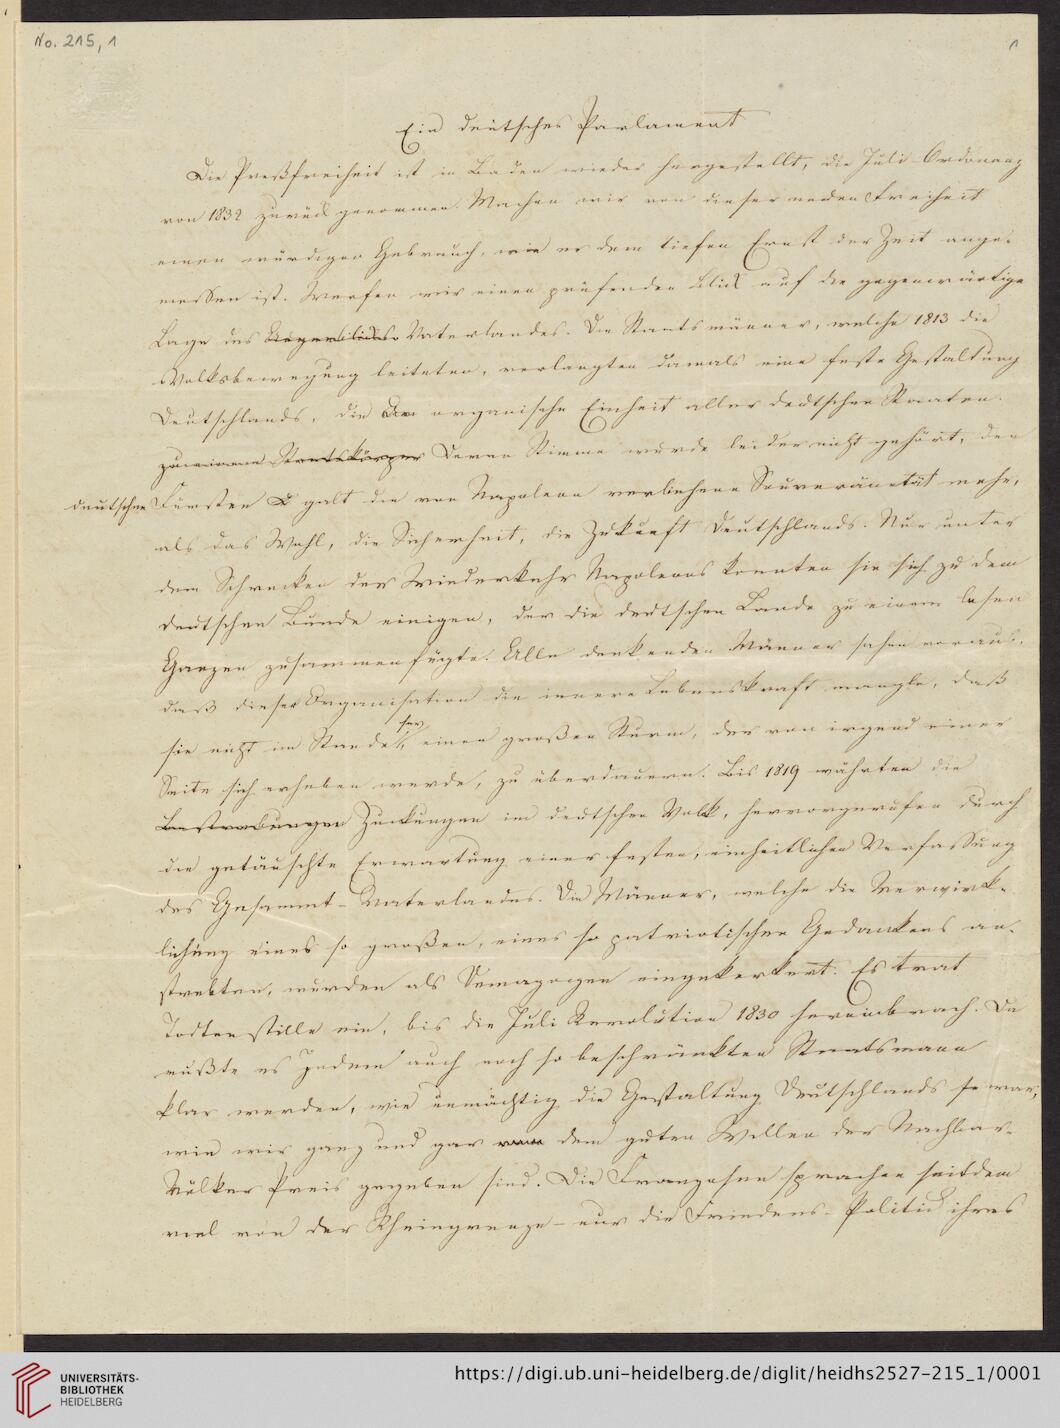 No. 215, 1
1
Ein deutsches Parlament
Die Preßfreiheit ist in Baden wieder hergestellt, die Juli-Ordonanz
von 1832 zurückgenommen. Machen wir von dieser neuen Freiheit
einen würdigen Gebrauch, wie er dem tiefen Ernst der Zeit ange-
messen ist. Werfen wir einen prüfenden Blick auf die gegenwärtige
Lage des Vaterlandes. Die Staatsmänner, welche 1813 die
Volksbewegung leiteten, verlangten damals eine feste Gestaltung
Deutschlands, die organische Einheit aller deutschen Staaten.
zu einem Staatskörper Deren Stimme wurde leider nicht gehört, den
deutschen Fürsten galt die von Napoleon verliehene Souveränetät mehr,
als das Wohl, die Sicherheit, die Zukunft Deutschlands. Nur unter
dem Schrecken der Wiederkehr Napoleons konnten sie sich zu dem
deutschen Bunde einigen, der die deutschen Lande zu einem losen
Ganzen zusammenfügte. Alle denkenden Männer sahen voraus,
daß dieser Organisation die innere Lebenskraft mangle, daß
sie nicht im Stande sey, einen großen Sturm, der von irgend einer
Seite sich erheben werde, zu überdauern. Bis 1819 währten die
Bestrebungen Zuckungen im deutschen Volk, hervorgerufen durch
die getäuschte Erwartung einer festen, einheitlichen Verfassung
des Gesammt-Vaterlandes. Die Männer, welche die Verwirk-
lichung eines so großen, eines so patriotischen Gedankens an-
strebten, wurden als Demagogen eingekerkert. Es trat
Todtenstille ein, bis die Juli Revolution 1830 hereinbrach. Da
mußte es jedem auch noch so beschränkten Staatsmann
klar werden, wie unmächtig die Gestaltung Deutschlands se war,
wie wir ganz und gar dem guten Willen der Nachbar-
Völker Preis gegeben sind. Die Franzosen sprachen seitdem
viel von der Rheingrenze - nur die Friedens-Politik ihres
UNIVERSITÄTS-
BIBLIOTHEK
HEIDELBERG
https://digi.ub.uni-heidelberg.de/diglit/heidhs2527-215_1/0001